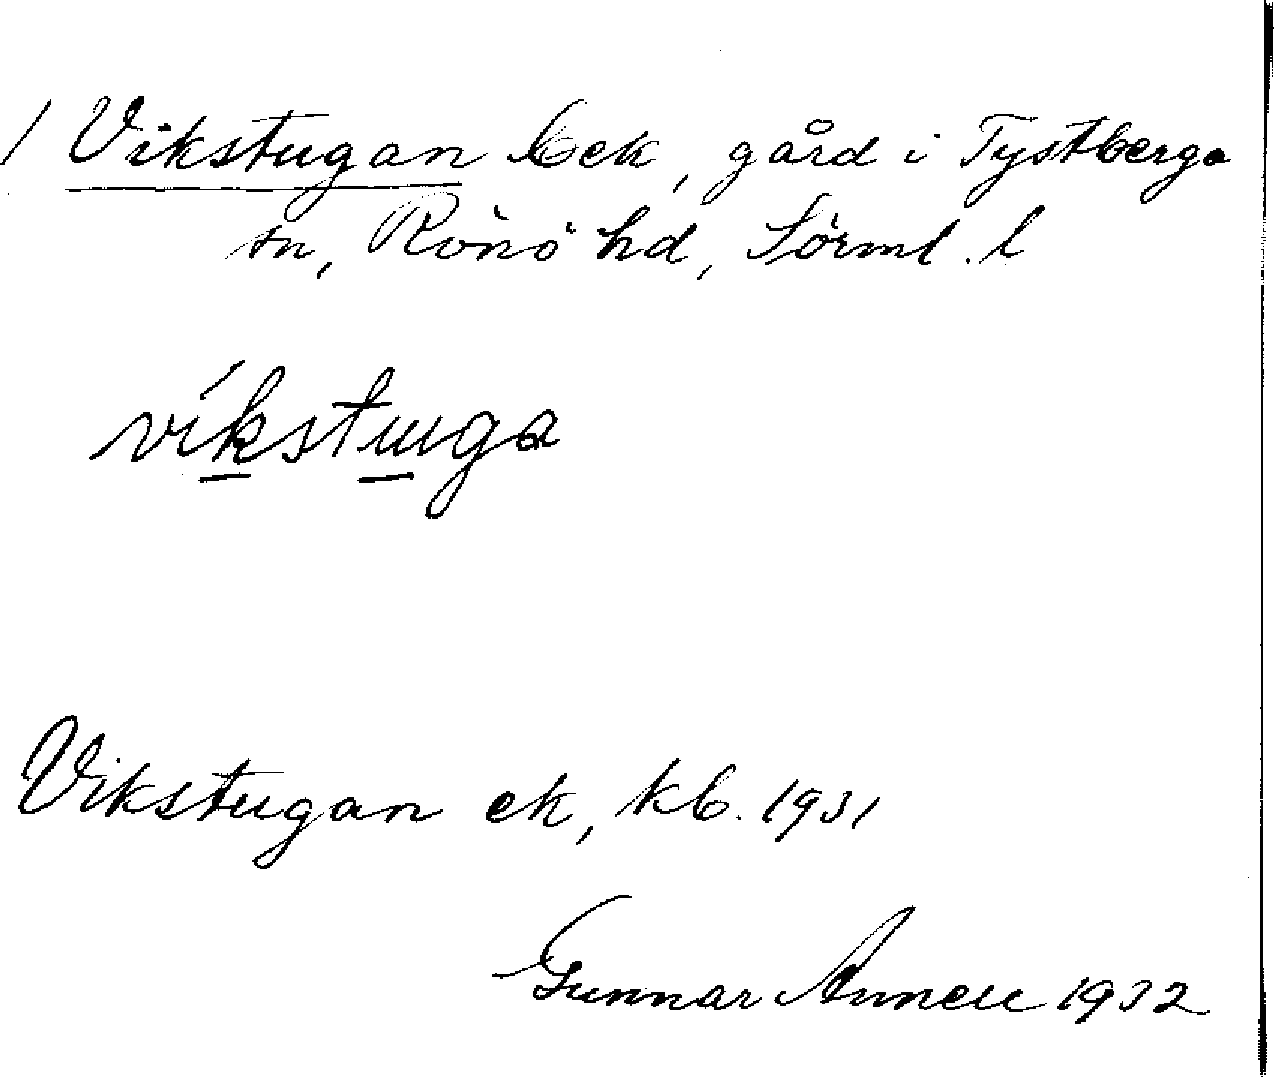 / Vikstugan ek, gård i Tystberga
sn, Rönö hd, Sörml. l
víkstuga
Vikstugan ek, kb. 1931
Gunnar Annell 1932